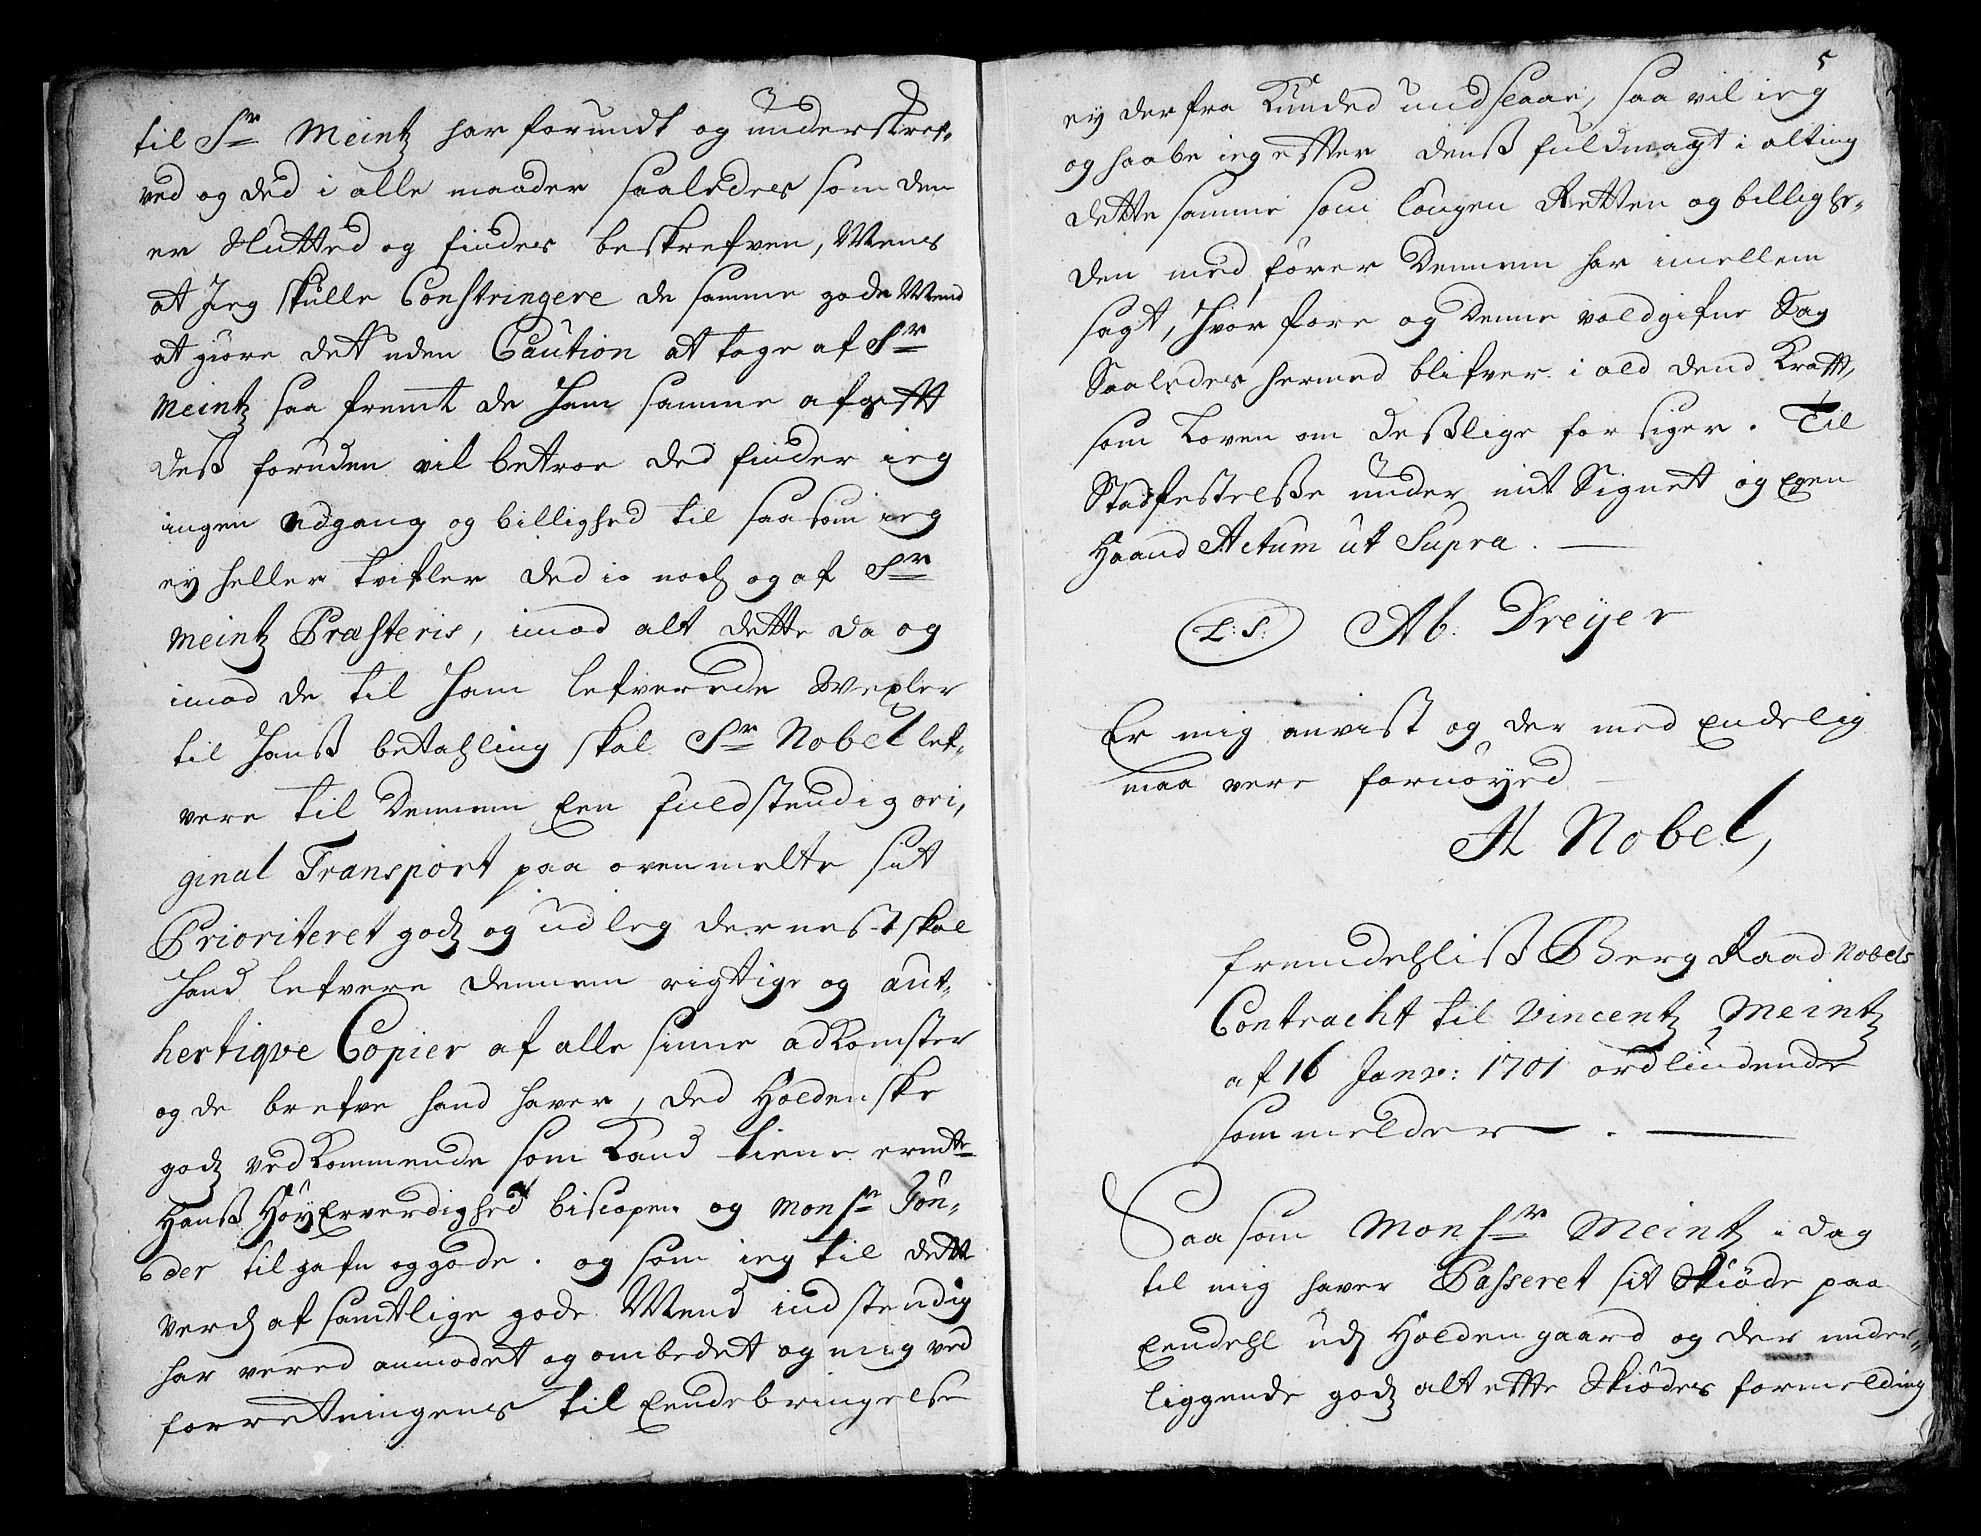 til Sr Meintz har forundt og underskref-
ved og ded i alle maader saaledes som den
er slutted og findes beskrefven, Mens
at Jeg skulle Constringere de samme gode Mend
at giøre det uden Caution at tage af Sr
Meintz saa fremt de ham samme afgett
dess foruden vil betroe ded finder ieg
ingen adgang og billighed til saasom ieg
ey heller tvifler ded io noch og af Sr
Meintz Præsteris, imod alt dette da og
imod de til ham lefverede Wexler
til hanss betahling skal Sr Nobel lef-
vere til dennem Een fuldstendig ori,
ginal Transport paa ovenmelte sit
Prioriteret godz og udleg dernest skal
hand lefvere dennem rigtige og aut-
hertiqve Copier af alle sinne adkomster
og de brefve hand haver, ded Holdenske
godz vedkommende som kand tiene ermte
Hanss HøyErverdighed biscopen og Monsr Tøn-
der til gafn og gode. og som ieg til dette
verch af samtlige gode Mend indstendig
har vered anmodet og ombedet og mig ved
forretningens til Eendebringelse
5
ey derfra kunded undslaae, saa vil ieg
og haabe ieg etter denss fuldmagt i alting
dette samme som Lougen Retten og billighe-
den med fører dennem har imellem
sagt, hvor fore og denne voldgifne Sag
Saaledes hermed blifver i ald dend Kraft,
som Loven om desslige for siger. Til
Stadfestelsse under mit Signet og Egen
Haand Actum ut Supra.
L:S: Ab: Dreyer
Er mig anvist og der med Endelig
maa vere fornøyed
A Nobel,
fremdehliss Berg Raad Nobels
Contracht til Vincentz Meintz
af 16 Janv: 1701 ordlindende
som melder.
Saasom Monsr Meintz i dag
til mig haver Passeret sit Skiøde paa
Eendehl udj Holden gaard og der under-
liggende godz alt ette Skiødes formelding